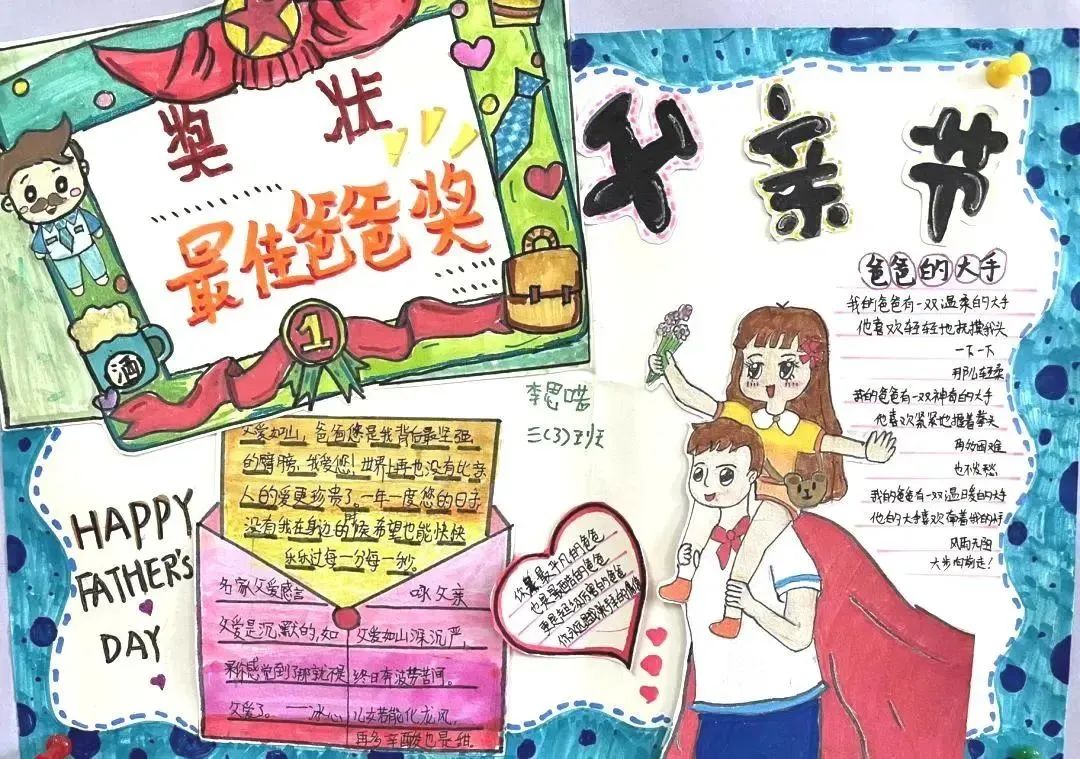 奖 状
最佳爸爸奖
1
酒
父亲节
爸爸的大手
我的爸爸有一双温柔的大手
他喜欢轻轻地抚摸我头
一下一下
那么轻柔
我的爸爸有一双神奇的大手
他喜欢紧紧地握着拳头
再多困难
也不发愁
我的爸爸有一双温暖的大手
他的大手喜欢牵着我的手
风雨无阻
大步向前走!
三(3)班
父爱如山,爸爸您是我背后最坚强
的臂膀,我爱您!世界上再也没有比亲
人的爱更珍贵了,一年一度您的日子,
没有我在身边的时候希望也能快快
乐乐过每一分每一秒。
HAPPY
FATHER's
DAY
名家父爱感言
父爱是沉默的,如
果你感觉到了那就不是
父爱了。——冰心
咏父亲
父爱如山深沉严,
终日奔波劳苦间。
儿女若能化龙凤,
再多辛酸也是甜。
你是最平凡的爸爸
也是最酷的爸爸